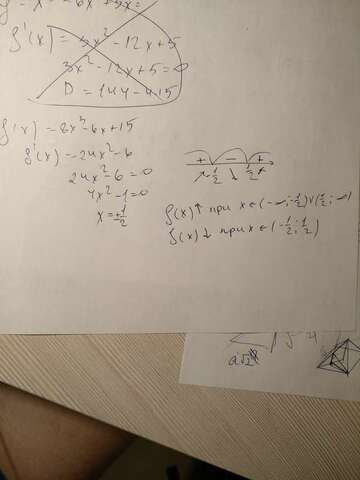 f'(x) = 3x² - 12x + 5
3x² - 12x + 5 = 0
D = 144 - 4·15
f(x) - 8x³ - 6x + 15
f'(x) - 24x² - 6
24x² - 6 = 0
4x² - 1 = 0
x = ± 1/2
+ - +
-1/2 1/2 x
f(x) ↑ при x ∈ (-∞; -1/2) ∪ (1/2; ∞)
f(x) ↓ при x ∈ (-1/2; 1/2)
a√2